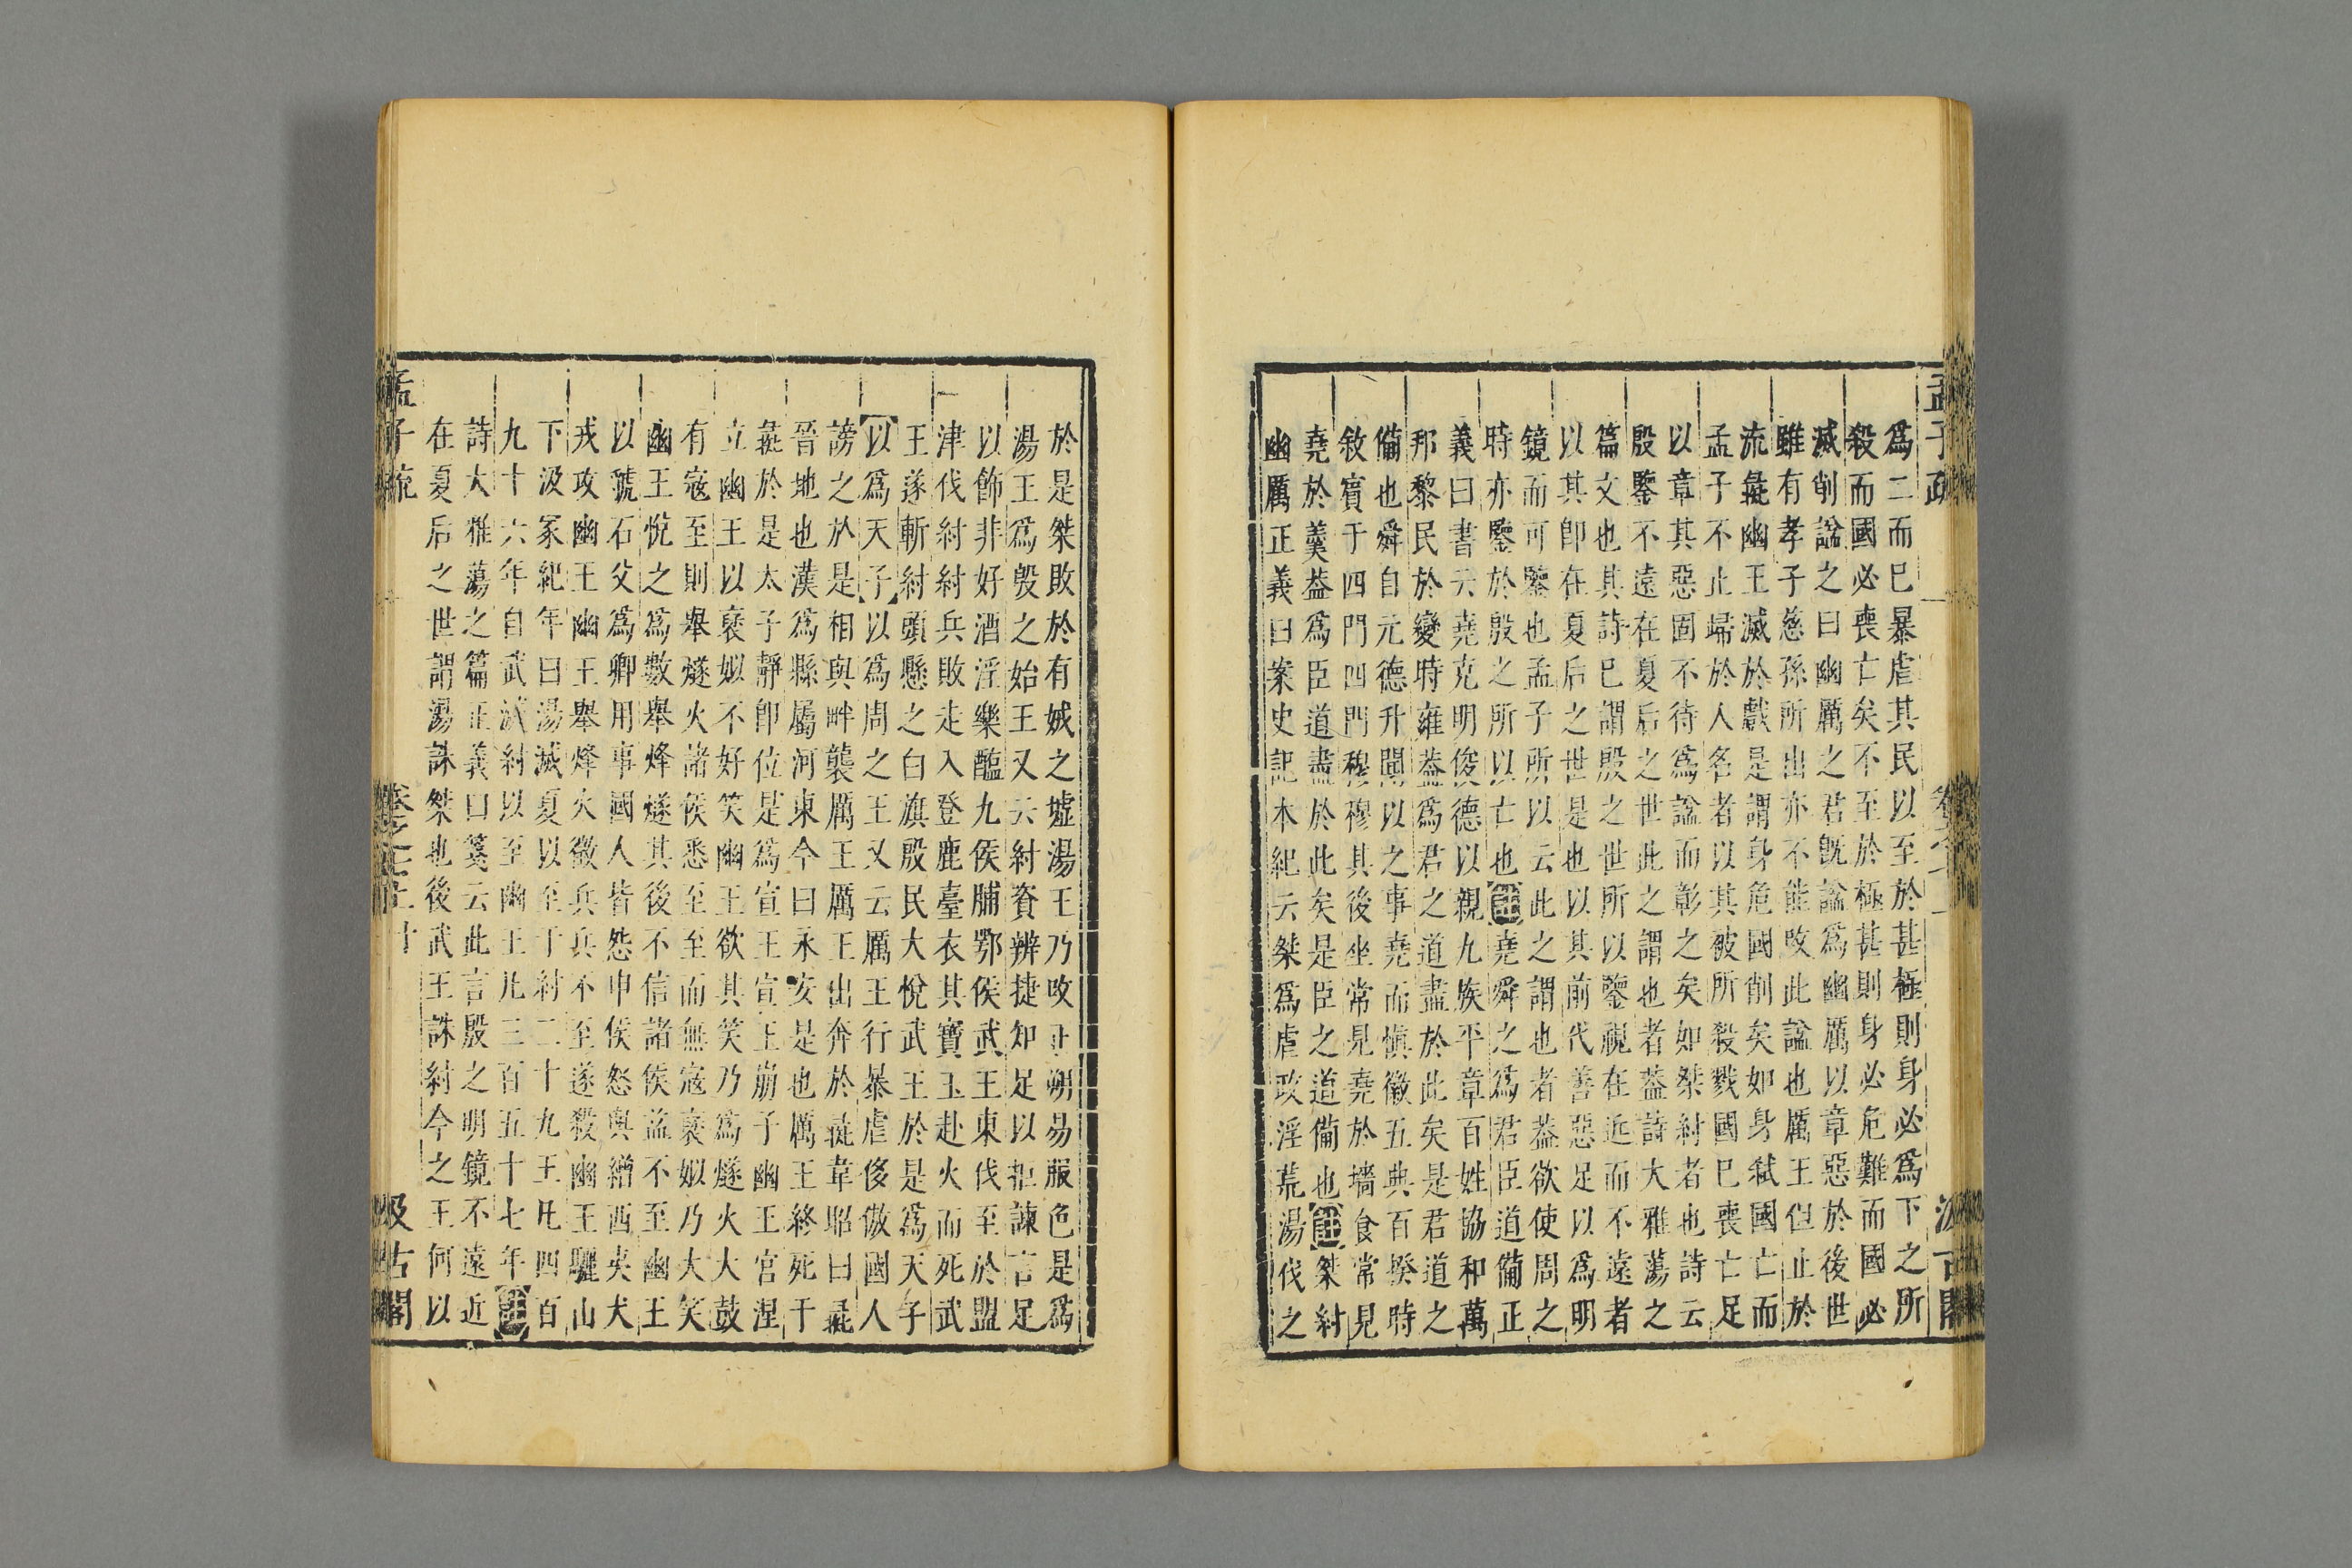 孟子疏
汲古閣
爲二而巳暴虐其民以至於甚極則身必爲下之所
殺而國必喪亡矣不至於極甚則身必危難而國必
滅削諡之曰幽厲之君旣諡爲幽厲以章惡於後世
雖有孝子慈孫所出亦不能改此諡也厲王但止於
流彘幽王滅於戲是謂身危國削矣如身弑國亡而
孟子不止歸於人名者以其被所殺戮國巳喪亡足
以章其惡固不待爲諡而彰之矣如桀紂者也詩云
殷鑒不遠在夏后之世此之謂也者葢詩大雅蕩之
篇文也其詩巳謂殷之世所以鑒視在近而不遠者
以其即在夏后之世是也以其前代善惡足以爲明
鏡而可鑒也孟子所以云此之謂也者葢欲使周之
時亦鑒於殷之所以亡也註堯舜之爲君臣道備正
義曰書云堯克明俊德以親九族平章百姓協和萬
邦黎民於變時雍葢爲君之道盡於此矣是君道之
備也舜自元德升聞以之事堯而慎徽五典百揆時
敘賓于四門四門穆穆其後坐常見堯於墻食常見
堯於羹葢爲臣道盡於此矣是臣之道備也註桀紂
幽厲正義曰案史記本紀云桀爲虐政淫荒湯伐之
於是桀敗於有娀之墟湯王乃改正朔易服色是爲
湯王爲殷之始王又云紂資辨捷知足以拒諫言足
以飾非好酒淫樂醢九侯脯鄂侯武王東伐至於盟
津伐紂紂兵敗走入登鹿臺衣其寶玉赴火而死武
王遂斬紂頭懸之白旗殷民大悅武王於是爲天子
以爲天子以爲周之王又云厲王行暴虐侈傲國人
謗之於是相與畔襲厲王厲王出奔於彘韋昭曰彘
晉地也漢爲縣屬河東今曰永安是也厲王終死于
彘於是太子靜即位是爲宣王宣王崩子幽王宮涅
立幽王以褒姒不好笑幽王欲其笑乃爲燧火大鼓
有寇至則舉燧火諸侯悉至至而無寇褒姒乃大笑
幽王悅之爲數舉烽燧其後不信諸侯益不至幽王
以虢石父爲卿用事國人皆怨申侯怒與繒西夷犬
戎攻幽王幽王舉烽火徵兵兵不至遂殺幽王驪山
下汲冢紀年曰湯滅夏以至于紂二十九王凡四百
九十六年自武滅紂以至幽王凡三百五十七年註
詩大雅蕩之篇正義曰箋云此言殷之明鏡不遠近
在夏后之世謂湯誅桀也後武王誅紂今之王何以
孟子疏
卷之七上
汲古閣